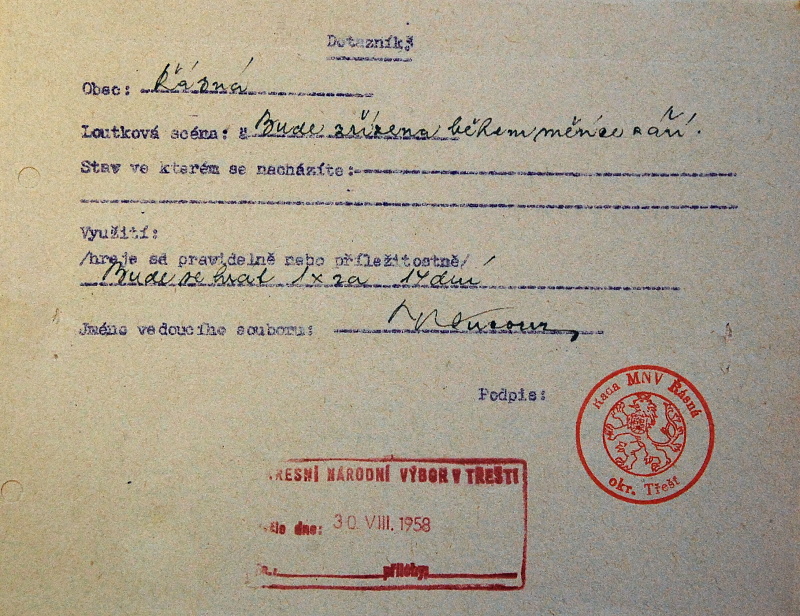 Dotazník:
Obec: Řásná
Loutková scéna: Bude zřízena během měsíce září.
Stav ve kterém se nacházíte:
Využití:
/hraje se pravidelně nebo příležitostně/
Bude se hrát 1x za 14 dní
Jméno vedoucího souboru:
Podpis:
Rada MNV Řásná
okr. Třešť
RESNÍ NÁRODNÍ VÝBOR V TŘEŠTI
dne: 30. VIII. 1958
přílohy: